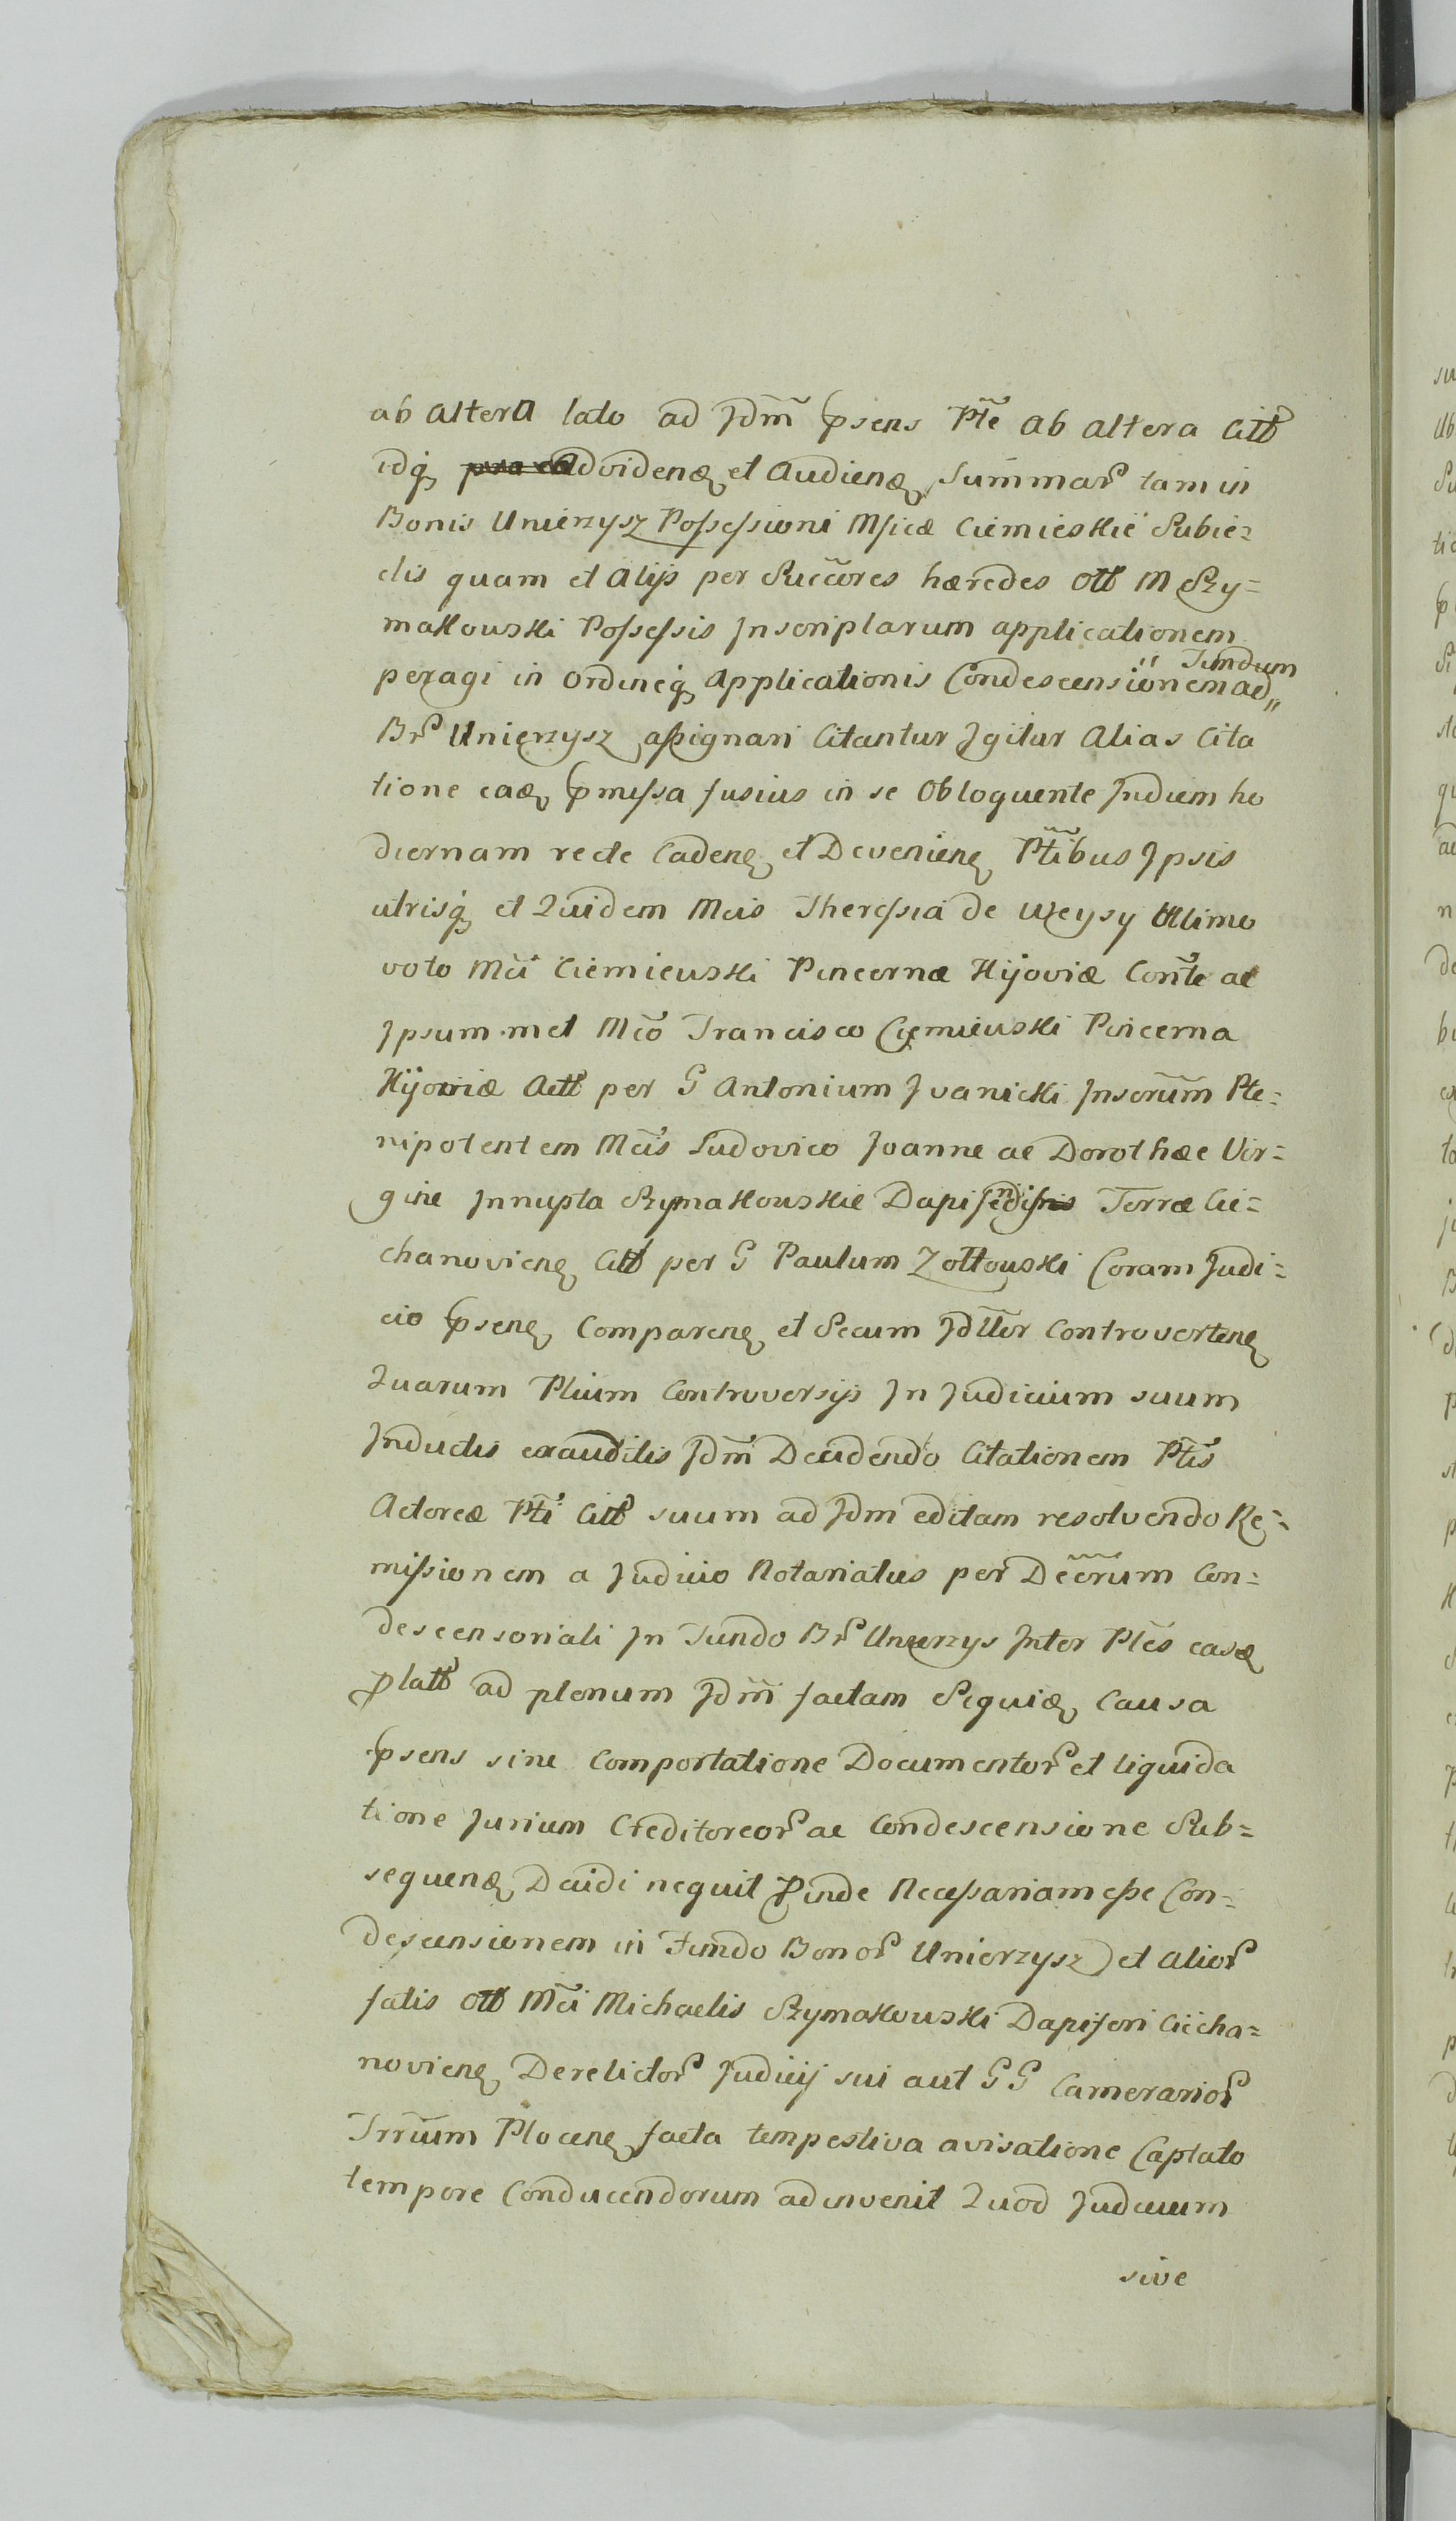 ab altera lato ad Jdm̃ p̃sens Pte ab altera Citt
idq̨ ad videnđ et Audienđ Summar̃ tam in
Bonis Unierzysz Possessioni Mficæ Ciemieskie Subie=
ctis quam et Alijs per Succ̃ores hæredes Ott M Szy=
makouski Possessis Inscriptarum applicationem
peragi in ordineq̨ Applicationis Condescensionem ad Fundum
Br̃ Unierzysz assignari Citantur Igitur Alias Cita
tione eađ p̃missa fusius in se Obloquente In diem ho
diernam recte Cadenę et Devenienę Pt̃ibus Ipsis
utrisq̨ et Quidem Mcis Theressia de Weysy Ultimo
voto Mci Ciemieuski Pincernæ Kijoviæ Con̄te ac
Ipsum met Mco Francisco Ciemieuski Pincerna
Kijowiæ Actt per G Antonium Iwanicki Inscrum̃ Ple=
nipotentem Mcis Ludovico Joanne ac Dorothæe Vir=
gine Innupta Szymakouskie Dapiferidis Terræ Cie=
chanovienę Citt per G Paulum Zołtouski Coram Judi=
cio p̃senę Comparenę et Secum Jdllter Controvertenę
Quarum Ptium Controversijs In Judicium suum
Inductis exauditis Jdm̃ Decidendo Citationem Ptis
Actoreæ Pti Citt suum ad Jdm editam resolvendo Re=
missionem a Judicio Notariatus per Decrum̃ Con=
descensoriali In Fundo Br̃ Unierzys Inter Ptes easđ
p̃latt ad plenum Jdm̃ factam Sequiđ Causa
p̃sens sine Comportatione Documentor̃ et liquida
tione Jurium Creditoreor̃ ac Condescensione Sub=
sequenđ Decidi nequit P̃inde Necessariam esse Con=
descensionem in Fundo Bonor̃ Unierzysz et alior̃
fatis Ott Mci Michaelis Szymakouski Dapiferi Ciecha=
novienę Derelictor̃ Judicij sui aut G G Camerarior̃
Trrium̃ Plocenę facta tempestiva avisatione Captato
tempore Conducendorum adinvenit Quod Judicium
sive